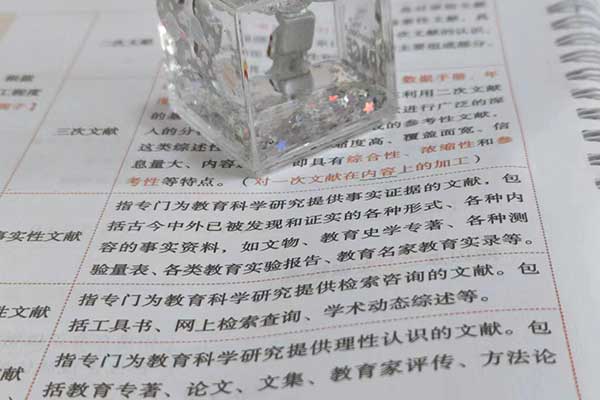 二次文献
三次文献
数据手册、年
利用二次文献
次进行广泛的深
的参考性文献。
人的分
这类综述性
缩度高、覆盖面宽、信
息量大、内容
即具有综合性、浓缩性和参
考性等特点。(对一次文献在内容上的加工)
事实性文献
指专门为教育科学研究提供事实证据的文献，包
括古今中外已被发现和证实的各种形式、各种内
容的事实资料，如文物、教育史学专著、各种测
验量表、各类教育实验报告、教育名家教育实录等。
性文献
指专门为教育科学研究提供检索咨询的文献。包
括工具书、网上检索查询、学术动态综述等。
献
指专门为教育科学研究提供理性认识的文献。包
括教育专著、论文、文集、教育家评传、方法论